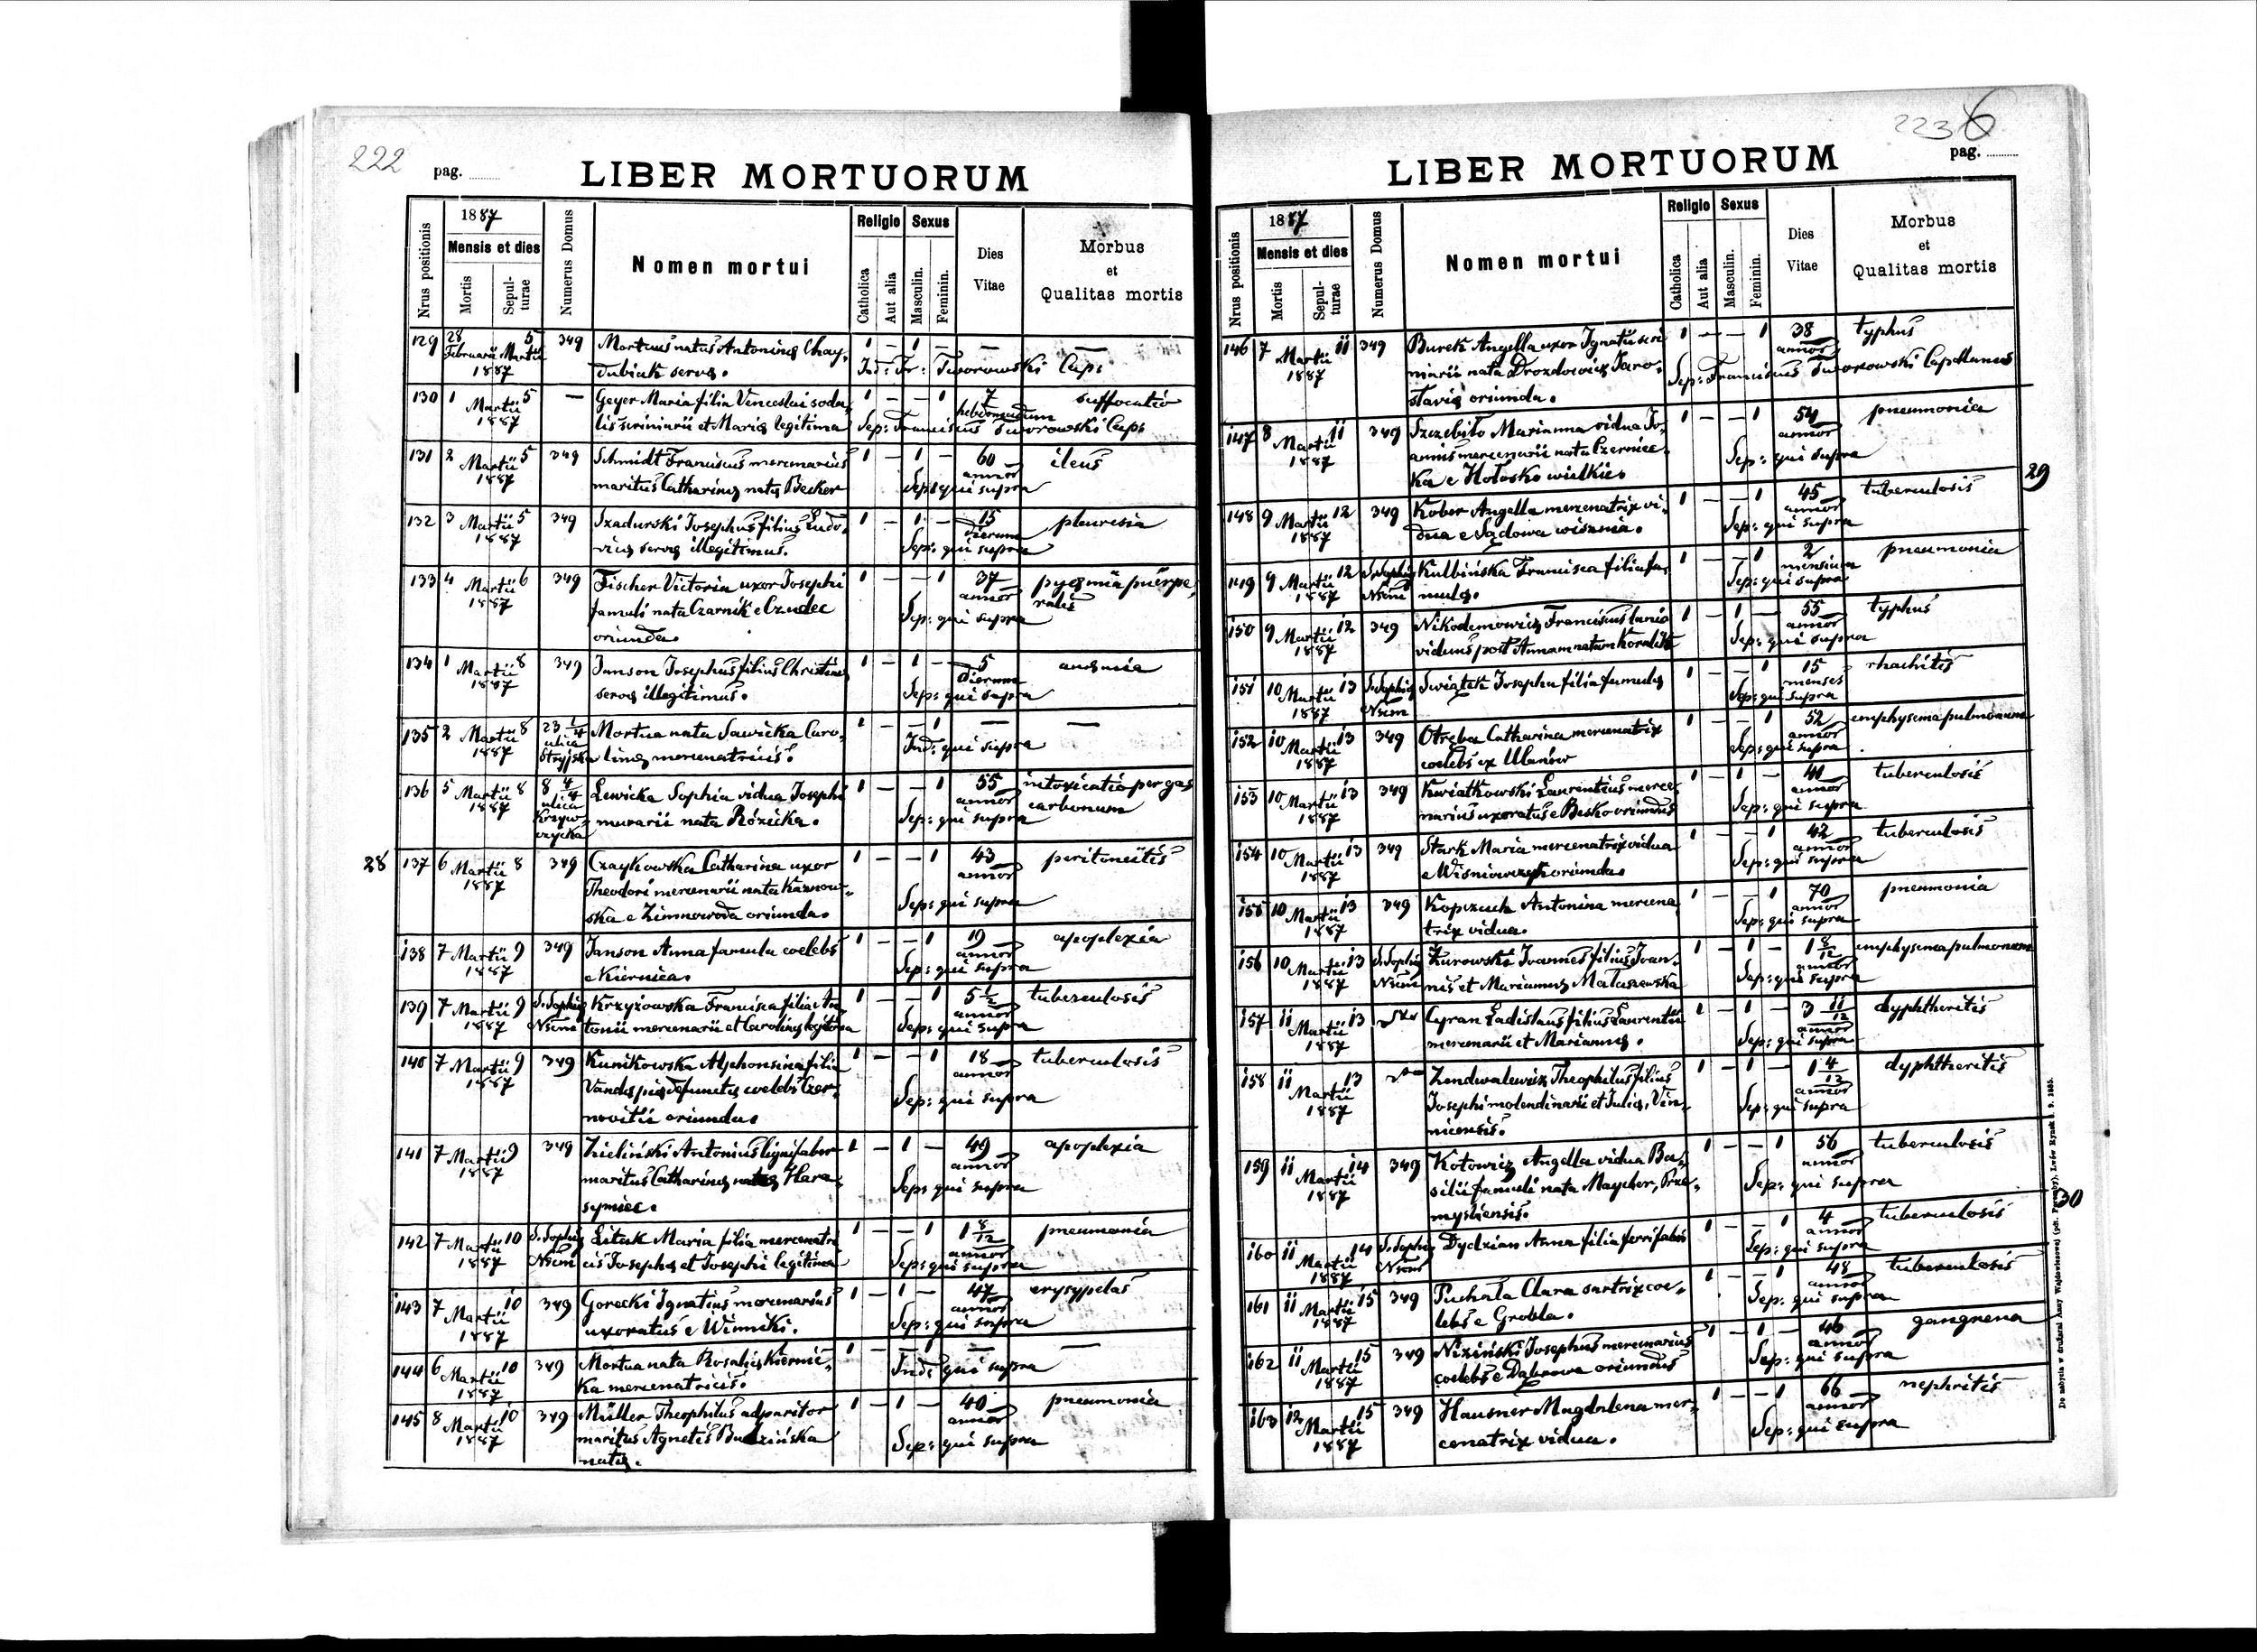 222
pag.
LIBER MORTUORUM
Nrus positionis
1887
Mensis et dies
Mortis
Sepulturae
Numerus Domus
Nomen mortui
Religio
Catholica
Aut alia
Sexus
Masculin.
Feminin.
Dies
Vitae
Morbus
et
Qualitas mortis
129 28 Februarii 5 Martii 349 Mortuus natus Antoninę Chay, 1 — 1 — — —
1887 dubiak servę. Ind: Fr: Tworowski Cap:
130 1 Martii 5 — Geyer Maria filia Venceslai soda, 1 — — 1 7 suffocatio
1887 lis scriniarii et Marię legitima hebdomadum
Sep: Franciscus Tworowski Cap:
131 2 Martii 5 349 Schmidt Franciscus mercenarius 1 — 1 — 60 ileus
1887 maritus Catharinę natę Becker annor
Sep: qui supra
132 3 Martii 5 349 Szadurski Josephus filius Ludo, 1 — 1 — 15 pleuresia
1887 vicę servę illegitimus. dierum
Sep: qui supra
133 4 Martii 6 349 Fischer Victoria uxor Josephi 1 — — 1 37 pyęmia puerpe,
1887 famuli nata Czarnik e Czudec annor ralis
oriunda. Sep: qui supra
134 1 Martii 8 349 Janson Josephus filius Christinę 1 — 1 — 5 anęmia
1887 servę illegitimus. dierum
Sep: qui supra
135 2 Martii 8 23 1/4 Mortua nata Sawicka Caro, 1 — — 1 — —
1887 ulica Stryjska linę mercenatricis. Ind: qui supra
136 5 Martii 8 8 4/4 Lewicka Sophia vidua Josephi 1 — — 1 55 intoxicatio per gas
1887 ulica Krzywczycka murarii nata Rózicka. annor carbonum
Sep: qui supra
28
137 6 Martii 8 349 Czaykowska Catharina uxor 1 — — 1 43 peritoneitis
1887 Theodori mercenarii nata Kaznow- annor
ska e Zimnowoda oriunda. Sep: qui supra
138 7 Martii 9 349 Janson Anna famula coelebs 1 — — 1 19 apoplexia
1887 e Kiernica. annor
Sep: qui supra
139 7 Martii 9 S. Sophię Krzyżowska Francisca filia An 1 — — 1 5 1/2 tuberculosis
1887 tonii mercenarii et Carolinę legitima annor
Sep: qui supra
140 7 Martii 9 349 Kunikowska Alphonsina filia 1 — — 1 18 tuberculosis
1887 Vandę pię defunctę coelebs Czer, annor
novitii oriunda. Sep: qui supra
141 7 Martii 9 349 Zieliński Antonius lignifaber 1 — 1 — 49 apoplexia
1887 maritus Catharinę natę Hara, annor
symiec. Sep: qui supra
142 7 Martii 10 S. Sophię Litak Maria filia mercenatri 1 — — 1 1 8/12 pneumonia
1887 cis Josephę et Josephi legitima annor
Sep: qui supra
143 7 Martii 10 349 Gorecki Ignatius mercenarius 1 — 1 — 47 erysypelas
1887 uxoratus e Winniki. annor
Sep: qui supra
144 6 Martii 10 349 Mortua nata Rosalię Kiernic, 1 — — 1 — —
1887 ka mercenatricis. Ind: qui supra
145 8 Martii 10 349 Müller Theophilus adparitor 1 — 1 — 40 pneumonia
1887 maritus Agnetis Budzińska annor
natę. Sep: qui supra
223 6
pag.
LIBER MORTUORUM
Nrus positionis
1887
Mensis et dies
Mortis
Sepulturae
Numerus Domus
Nomen mortui
Religio
Catholica
Aut alia
Sexus
Masculin.
Feminin.
Dies
Vitae
Morbus
et
Qualitas mortis
146 7 Martii 11 349 Burek Angella uxor Ignatii scri 1 — — 1 38 typhus
1887 niarii nata Drozdowicz Jaro, annor
slavię oriunda. Sep: Franciscus Tworowski Capellanus
147 8 Martii 11 349 Szczebiło Marianna vidua Jo, 1 — — 1 54 pneumonia
1887 annis mercenarii nata Czerniec, annor
ka e Hołosko wielkie. Sep: qui supra
29
148 9 Martii 12 349 Kober Angella mercenatrix vi, 1 — — 1 45 tuberculosis
1887 dua e Sądowa wisznia. annor
Sep: qui supra
149 9 Martii 12 S. Sophię Kulbińska Francisca filia fa, 1 — — 1 2 pneumonia
1887 mulę. mensium
Sep: qui supra
150 9 Martii 12 349 Nikodemowicz Franciscus lanio 1 — 1 — 55 typhus
1887 viduus post Annam natam Koralik annor
Sep: qui supra
151 10 Martii 13 S. Sophię Swiątek Josepha filia famulę 1 — — 1 15 rhachitis
1887 menses
Sep: qui supra
152 10 Martii 13 349 Otręba Catharina mercenatrix 1 — — 1 52 emphysema pulmonum
1887 coelebs ex Ulanów annor
Sep: qui supra
153 10 Martii 13 349 Kwiatkowski Laurentius merce, 1 — 1 — 41 tuberculosis
1887 narius uxoratus e Besko oriundus annor
Sep: qui supra
154 10 Martii 13 349 Stark Maria mercenatrix vidua 1 — — 1 42 tuberculosis
1887 e Wisniowczyk oriunda. annor
Sep: qui supra
155 10 Martii 13 349 Kopczuch Antonina mercena 1 — — 1 70 pneumonia
1887 trix vidua. annor
Sep: qui supra
156 10 Martii 13 S. Sophię Żurowski Joannes filius Joan, 1 — 1 — 1 8/12 emphysema pulmonum
1887 nis et Mariannę Matuszewska annor
Sep: qui supra
157 11 Martii 13 Cyran Ladislaus filius Laurentii 1 — 1 — 3 11/12 dyphtheritis
1887 mercenarii et Mariannę. annor
Sep: qui supra
158 11 Martii 13 Zendwalewicz Theophilus filius 1 — 1 — 1 4/12 dyphtheritis
1887 Josephi molendinarii et Julię, Vin, annor
nicensis. Sep: qui supra
159 11 Martii 14 349 Kotowicz Angella vidua Ba, 1 — — 1 56 tuberculosis
1887 silii famuli nata Maycher, Prze, annor
mysliensis. Sep: qui supra
30
160 11 Martii 14 S. Sophię Dydzian Anna filia ferrifabri 1 — — 1 4 tuberculosis
1887 annor
Sep: qui supra
161 11 Martii 15 349 Puchała Clara sartrix coe, 1 — — 1 48 tuberculosis
1887 lebs e Grobla. annor
Sep: qui supra
162 11 Martii 15 349 Niziński Josephus mercenarius 1 — 1 — 46 gangrena
1887 coelebs e Dąbrowa oriundus annor
Sep: qui supra
163 12 Martii 15 349 Hausner Magdalena mer, 1 — — 1 66 nephritis
1887 cenatrix vidua. annor
Sep: qui supra